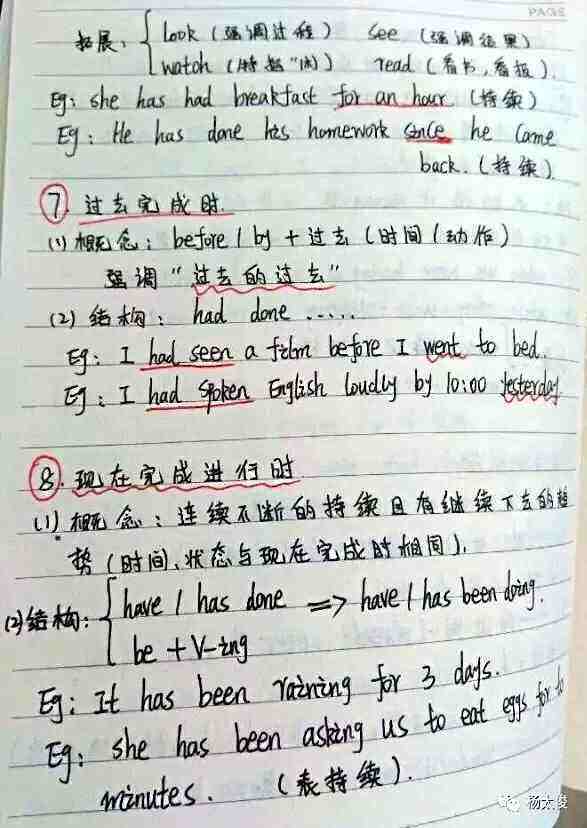 PAGE
拓展: look (强调过程) see (强调结果)
watch (特指"闲) read (看书,看报).
Eg: she has had breakfast for an hour. (持续)
Eg: He has done his homework since he came
back. (持续)
⑦. 过去完成时.
(1) 概念: before / by + 过去 (时间/动作)
强调 "过去的过去"
(2) 结构: had done ......
Eg: I had seen a film before I went to bed.
Eg: I had spoken English loudly by 10:00 yesterday.
⑧. 现在完成进行时
(1) 概念: 连续不断的持续且有继续下去的趋
势 (时间、状态与现在完成时相同).
(2) 结构: have / has done => have / has been doing.
be + V-ing
Eg: It has been raining for 3 days.
Eg: she has been asking us to eat eggs for
minutes. (表持续).
杨大俊